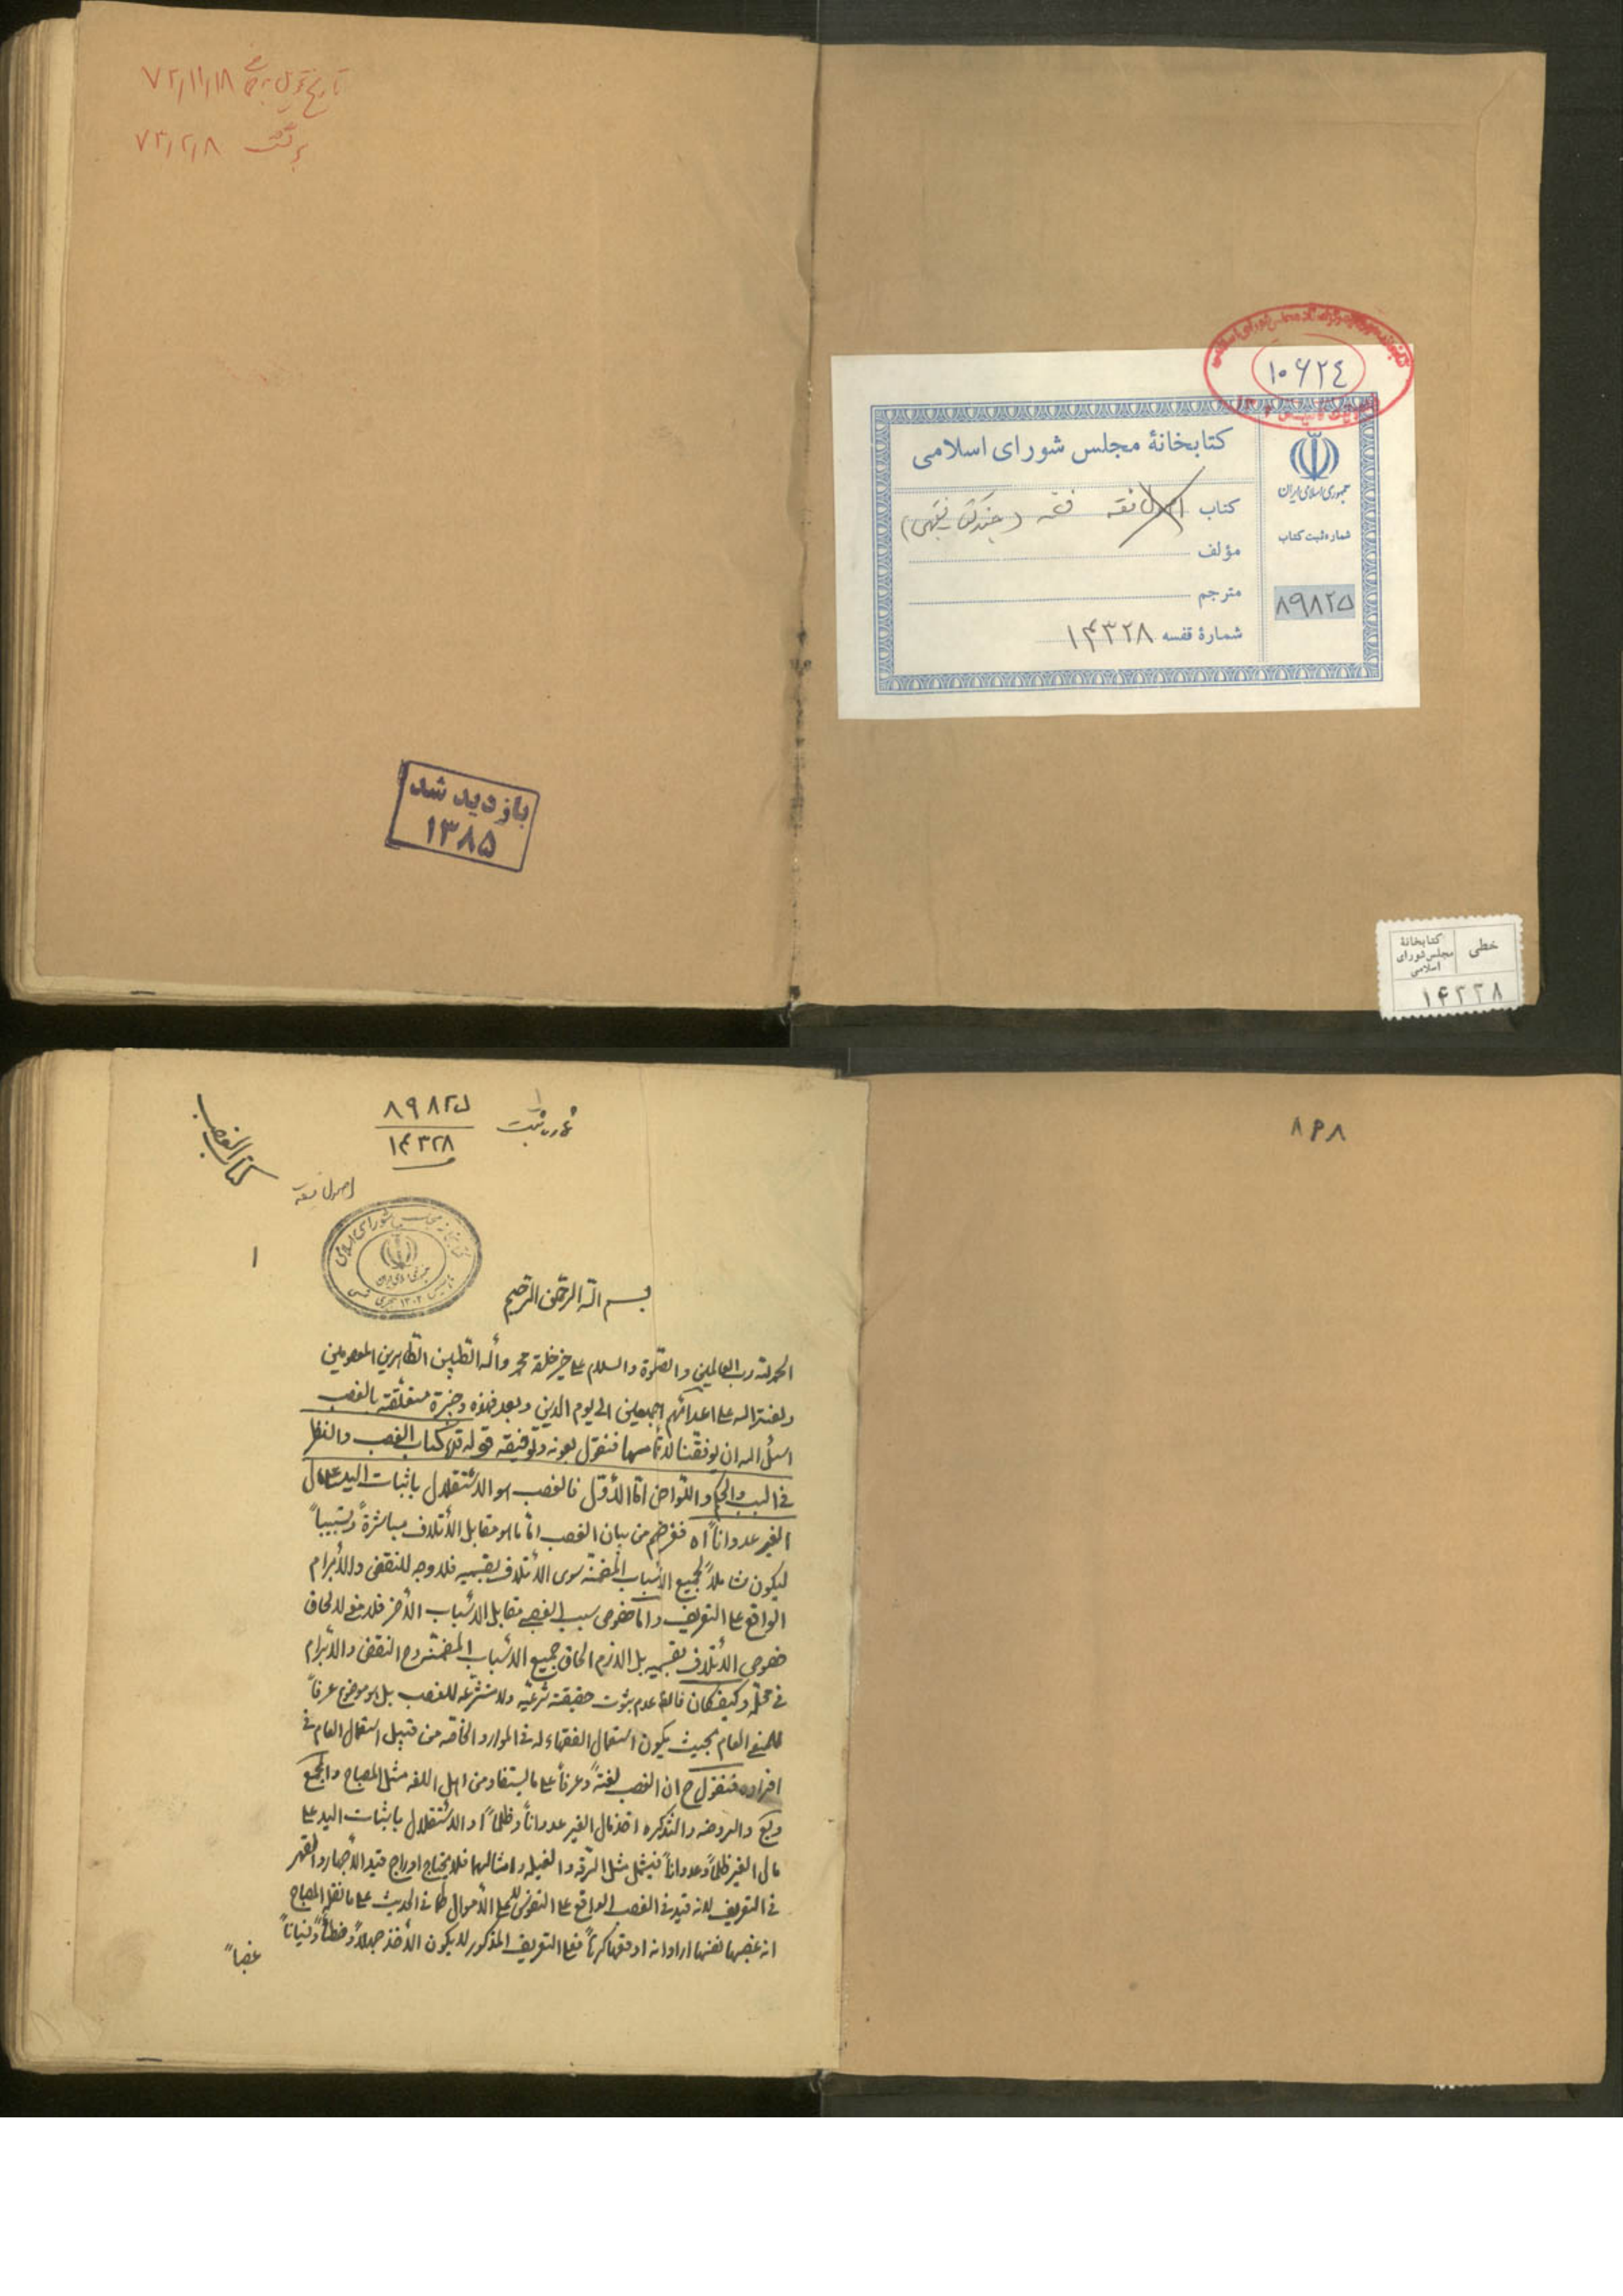 ٧٢/١١/١٨
برگشت ٧٣/٢/٨
بازدید شد
١٣٨۵
١٠۶٢٤
کتابخانهٔ مجلس شورای اسلامی
کتاب اصول فقه فقه (چند کتاب فقهی)
مؤلف
مترجم
شمارهٔ قفسه ١۴٣٢٨
جمهوری اسلامی ایران
شماره ثبت کتاب
٨٩٨٢۵
خطی
کتابخانهٔ
مجلس شورای
اسلامی
١۴٣٢٨
٨۶٨
شماره ثبت ٨٩٨٢۵
١۴٣٢٨
کتاب الغصب
اصول فقه
١
بسم الله الرحمن الرحیم
الحمد لله رب العالمین والصلوة والسلام علی خیر خلقه محمد وآله الطیبین الطاهرین المعصومین
ولعنة الله علی اعدائهم اجمعین الی یوم الدین وبعد فهذه وجیزة متعلقة بالغصب
اسئل الله ان یوفقنا لاتمامها فنقول بعونه وتوفیقه قوله کتاب الغصب والنظر
فی السبب والحکم واللواحق اما الأول فالغصب هو الاستقلال باثبات الید علی مال
الغیر عدواناً اه فغرضهم من بیان الغصب اما ما هو مقابل الأتلاف مباشرةً وتسبیباً
لیکون شاملاً لجمیع الأسباب المضمنة سوی الأتلاف بقسمیه فلا وجه للنقض والأبرام
الواقع علی التعریف واما خصوص سبب الغصب مقابل الأسباب الأخر فلا معنی لالحاق
خصوص الأتلاف بقسمیه بل اللازم الحاق جمیع الأسباب المضمنة وح النقض والأبرام
فی محله وکیف کان فالظ عدم ثبوت حقیقة شرعیه ولا متشرعه للغصب بل هو موضوع عرفاً
للمعنی العام بحیث یکون استعمال الفقهاء له فی الموارد الخاصه من قبیل استعمال العام فی
افراده فنقول ح ان الغصب لغةً وعرفاً علی ما یستفاد من اهل اللغه مثل المصباح والمجمع
ویع والروضه والتذکره اخذ مال الغیر عدواناً وظلماً او الاستقلال باثبات الید علی
مال الغیر ظلماً وعدواناً فیشمل مثل السرقه والغیله وامثالهما فلا یحتاج ادراج قید الأجهار والقهر
فی التعریف لانه قید فی الغصب الواقع علی النفوس لا علی الأموال کما فی الحدیث علی ما نقل المصباح
انه غصبها نفسها اراد انه اوقعها کرهاً فعلی التعریف المذکور لا یکون الأخذ جهلاً وخطأً ونسیاناً
غصباً